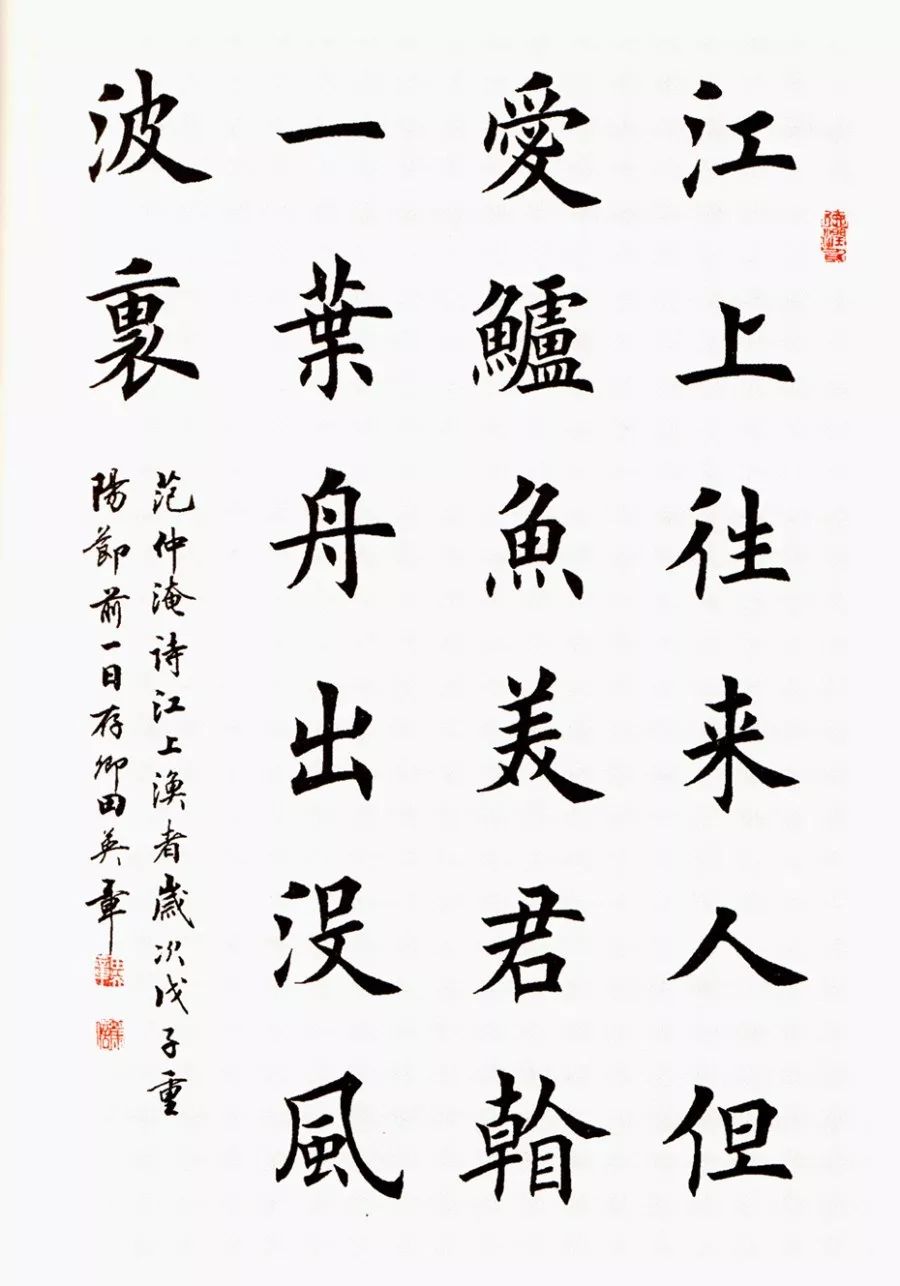 江上往来人但
愛鱸魚美君看
一葉舟出没風
波裏
范仲淹诗江上漁者歲次戊子重
陽節前一日存卿田英章